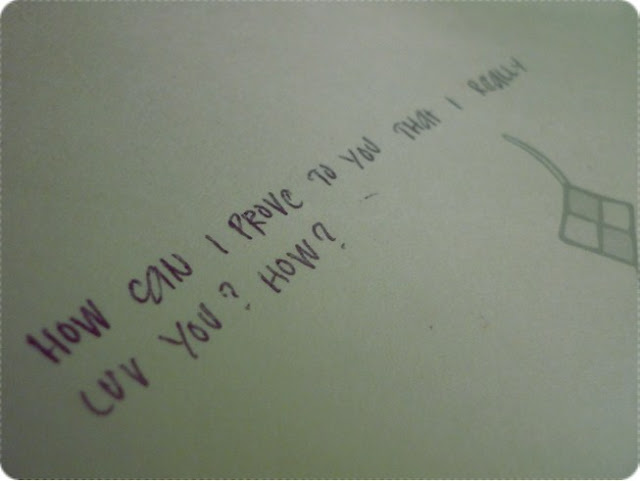 HOW CAN I PROVE TO YOU THAT I REALLY
LUV YOU? HOW?